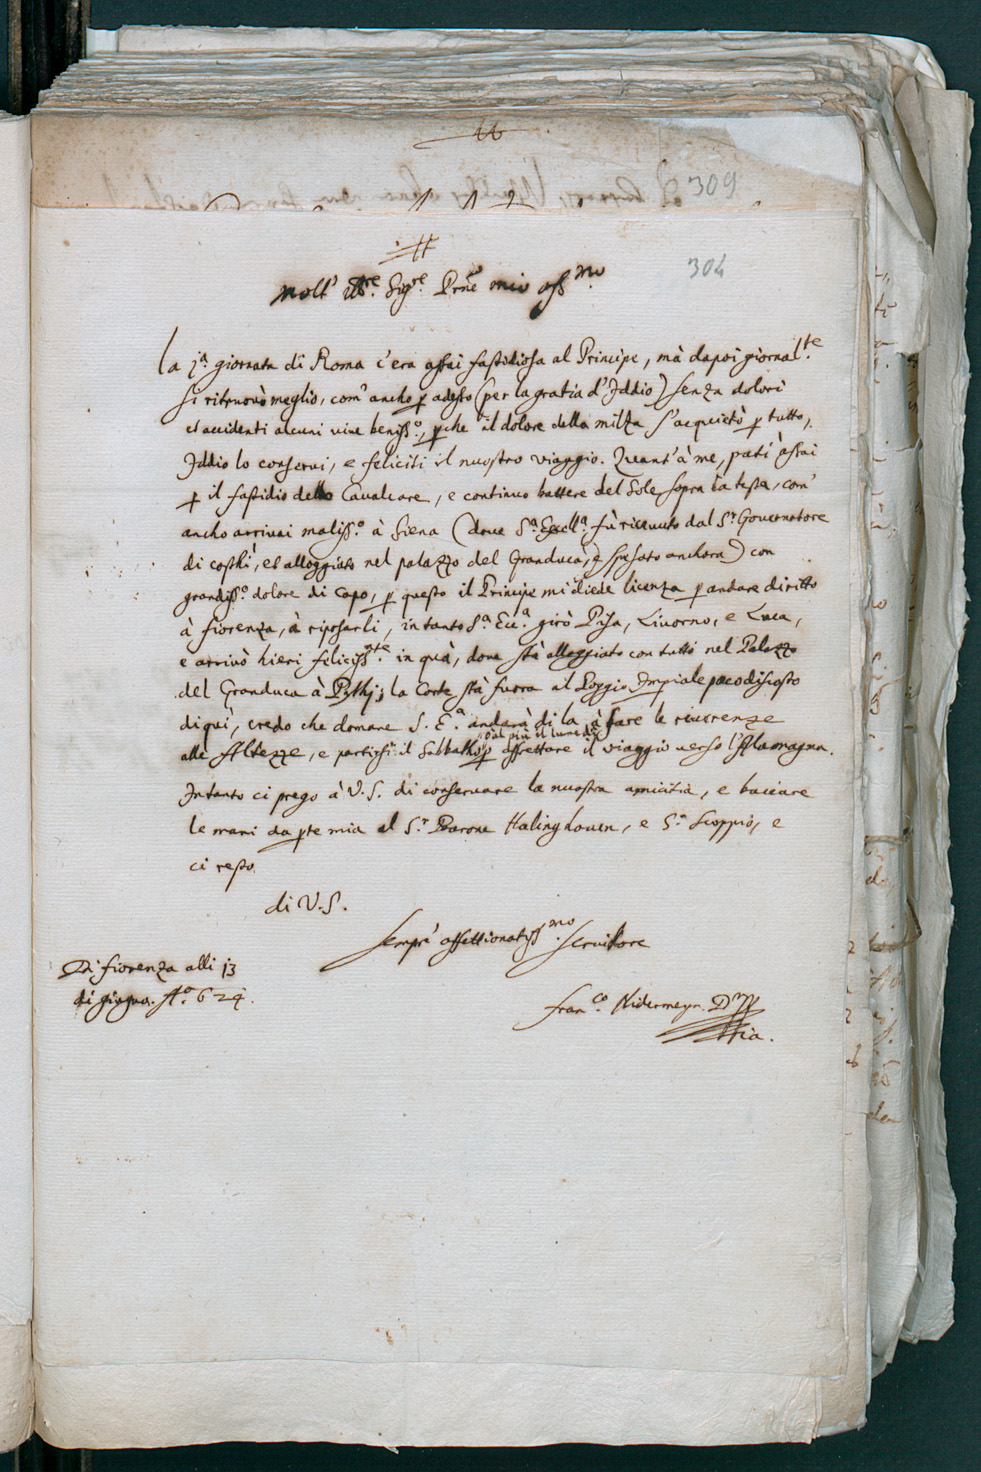 309
304
Molt' Ill.re Sig.re Prne mio oss.mo
la j.a giornata di Roma c'era assai fastidiosa al Principe, mà dapoi giornal.te
si ritruovò meglio, com' ancho p adesso (per la gratia d'Iddio) senza dolori
et accidenti alcuni vive beniss.o, pche il dolore della milza s'acquietò p tutto,
Iddio lo conservi, e feliciti il nuostro viaggio. Quant'à me, pati assai
p il fastidio dello Cavalcare, e continuo battere del Sole sopra la testa, com'
ancho arrivai maliss.o à Siena (dove S.a Eccll.a fù ricevuto dal S.r Governatore
di costhì, et alloggiato nel palazzo del Granduca, è spesato anchora) con
grandiss.o dolore di Capo, p questo il Principe mi diede licenza p andare diritto
à fiorenza, à riposarli, intanto S.a Ecc.a girò Pisa, Livorno, e Luca,
e arrivò hieri feliciss.nte in quà, dove stà alloggiato con tutti nel Palazzo
del Granduca à Pithj; la Corte stà fuora al Poggio Imperiale poco discosto
di quì, credo che domane S. E.a andarà di la à fare le riverenze
alle Altezze, e partirsi il Sabbatho, ò al più il lunedi, p affrettare il viaggio verso l'Alamagna.
Intanto ci prego à V.S. di conservare la nuostra amicitia, e bacciare
le mani da pte mia al S.r Barone Halinghoven, e S.r Scoppio, e
ci resto
di V.S.
sempr' affettionatiss.mo servitore
Di fiorenza alli j3
di giugno. A.o 624.
Fran.co Nidermeyr. D